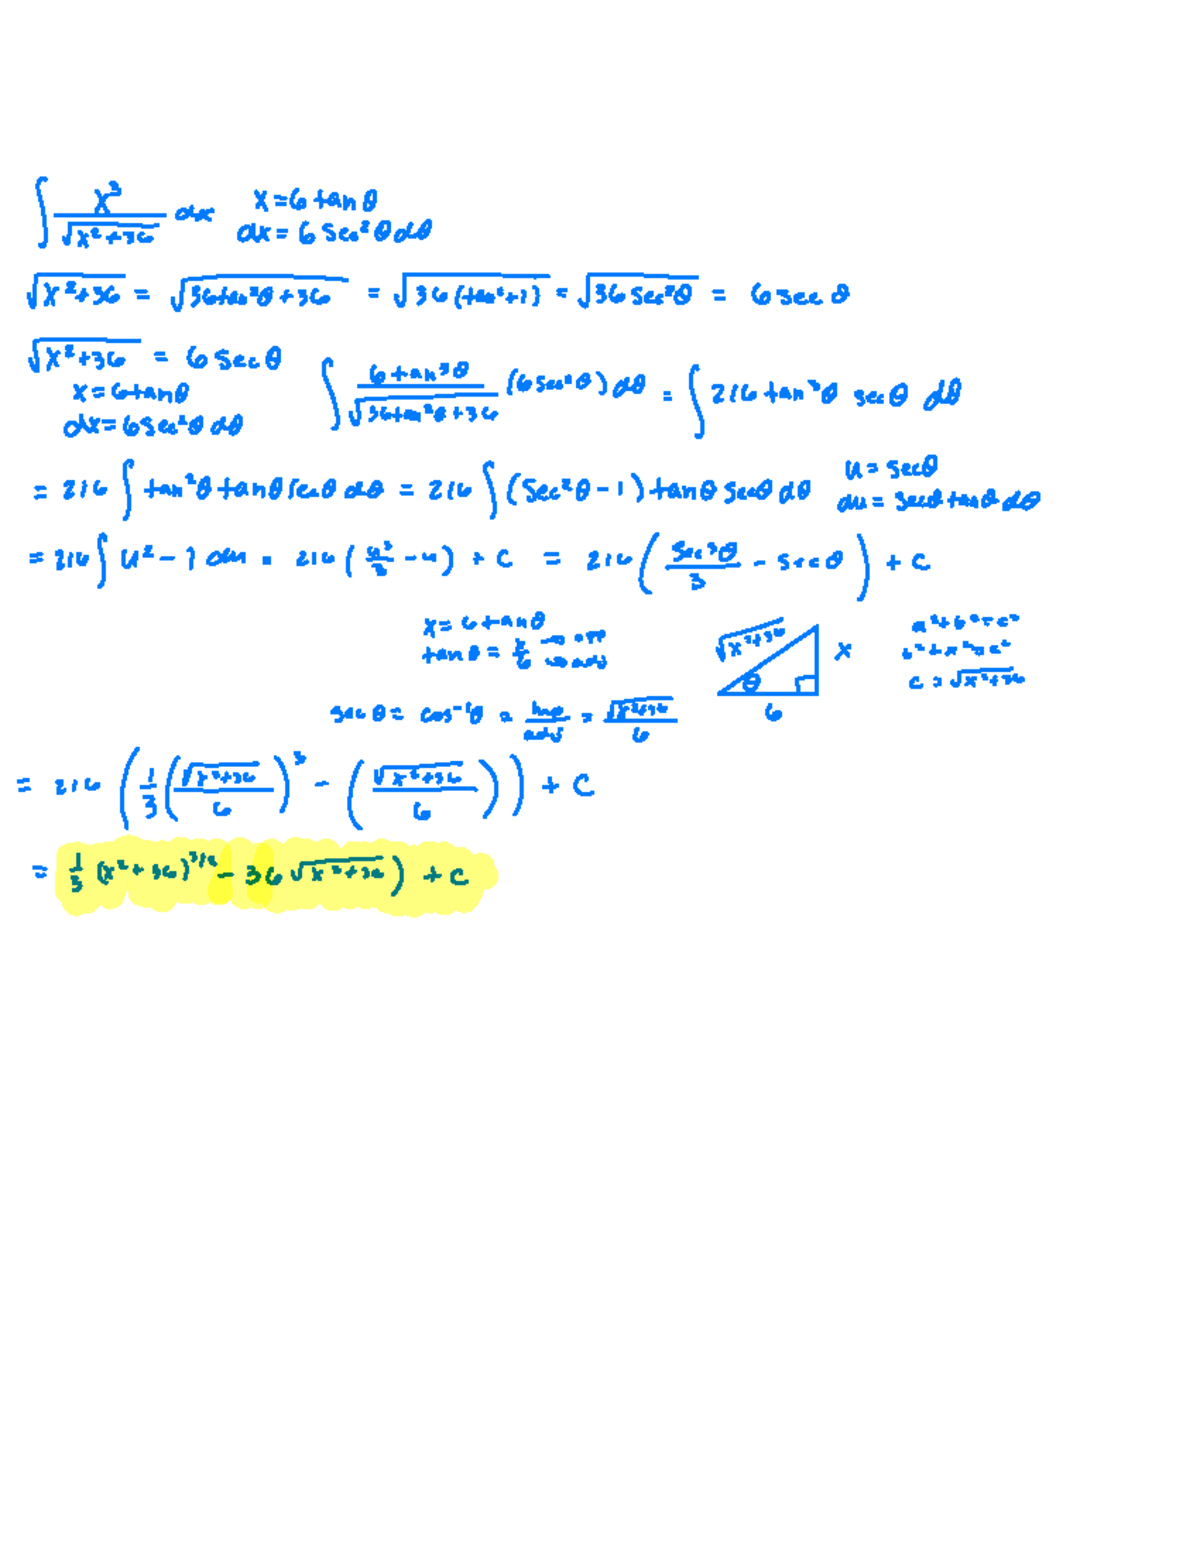 ∫ x³/√(x²+36) dx   x=6tanθ
dx=6sec²θdθ
√(x²+36) = √(36tan²θ+36) = √(36(tan²+1)) = √(36sec²θ) = 6secθ
√(x²+36) = 6secθ
x=6tanθ
dx=6sec²θdθ
∫ 6tan³θ/√(36tan²θ+36) (6sec²θ)dθ = ∫ 216tan³θ secθ dθ
= 216∫tan²θtanθsecθdθ = 216∫(sec²θ-1)tanθsecθdθ   u=secθ
du=secθtanθdθ
=216∫u²-1du = 216(u³/3-u)+C = 216(sec³θ/3-secθ)+C
x=6tanθ
tanθ=x/6 → opp → adj
√(x²+36) x θ 6
a²+b²=c²
6²+x²=c²
c=√(x²+36)
secθ= cos⁻¹θ = hyp/adj = √(x²+36)/6
= 216(1/3(√(x²+36)/6)³-(√(x²+36)/6))+C
= 1/3(x²+36)^3/2-36√(x²+36))+C